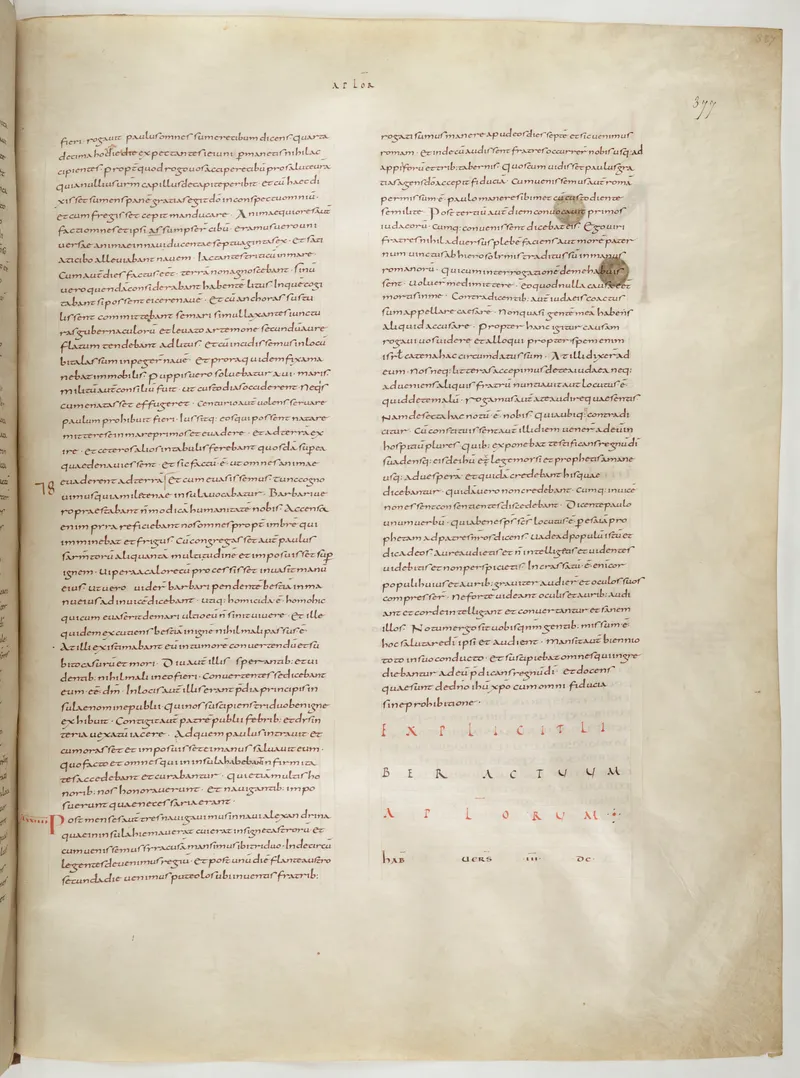 APLOR
377
fieri · rogauit paulus omnes sumere cibum dicens quarta
decima hodie die expectantes ieiuni pmanetis nihil ac
cipientes · propt quod rogo uos accipere cibu pro salute ura
quia nullius urm capillus de capite peribit · et cu haec di
xisset sumens pane gratias egit do in conspectu omniu
et cum fregisset cepit manducare · Animaequiores aut
facti omnes et ipsi assumpser cibu · eramus uero uni
uersae animae in naui ducentae septuaginta sex · et sati
ati cibo alleuiabant nauem · iactantes triticu in mare
Cum aut dies factus eet · terra non agnoscebant · sinu
uero quenda considerabant habente litus · In que cogi
tabant si possent eicere naue · et cu anchoras sustu
lissent committebant se mari simul laxantes iunctu
ras gubernaculoru et leuato artemone secundu aure
flatum tendebant ad litus · et cu incidissemus in locu
bitalassum inpeger naue · et prora quidem fixa ma
nebat immobilis · puppis uero soluebatur a ui · maris
militu aut consiliu fuit · ut custodias occiderent · Neqs
cum enatasset effugeret · Centurio aut uolens seruare
paulum prohibuit fieri · Iussitq; eos qui possent natare
mittere se in mare primos et euadere · et ad terra ex
ire · et ceteros alios in tabulis ferebant quosda supea
quae de naui essent · et sic factu e ut omnes animae
euaderent ad terra et cum euasissemus tunc cogno
uimus quia militenae insula uocabatur · Barbari ue
ro praestabant n modica humanitate nobis · Accensa
enim pyra reficiebant nos omnes propt imbre qui
imminebat et frigus · Cu congregasset aut paulus
sarmtoru aliquanta multitudine et imposuisset sup
ignem · uipera a calore cu processisset inuasit manu
eius · ut uero uider barbari pendente bestia in ma
nu eius ad inuice dicebant · utiq; homicida e homo hic
qui cum euaserit de mari ultio eu n sinit uiuere · et ille
quidem excutiens bestia in igne nihil mali passus e ·
At illi existimabant eu in tumore conuertendu et su
bito casuru et mori · Diu aut illis sperantib; et ui
dentib; nihil mali in eo fieri · Conuertentes se dicebant
eum ee dm · In locis aut illis erant pdia principis in
sulae nomine publii qui nos suscipiens triduo benigne
exhibuit · Contigit aut patre publii febrib; et dysin
teria uexatu iacere · Ad quem paulus intrauit et
cum orasset et imposuisset ei manus saluauit eum ·
quo facto et omnes qui in insula habebant infirmita
tes accedebant et curabantur · qui etia multis ho
norib; nos honorauerunt · et nauigantib; impo
suerunt quae necessaria erant ·
Post menses aut tres nauigauimus in naui alexandrina
quae in insula hiemauerat cui erat insigne castroru et
cum uenissemus syracusa mansimus ibi triduo · Inde circu
legentes deuenimus regiu · et post unu die flante austro
secunda die uenimus puteolos ubi inuentis fratrib;
rogati sumus manere apud eos dies septe et sic uenimus
romam · et inde cu audissent fratres occurrer nobis usq; ad
appi foru et trib; tabernis · quos cum uidisset paulus gra
tias agens do accepit fiducia · Cum uenissemus aut roma
permissum e paulo manere sibimet cu custodiente
se milite · Post tertiu aut diem conuocauit primos
iudaeoru · Cumq; conuenissent dicebat eis · Ego uiri
fratres nihil aduersus plebe faciens aut more pater
num uinctus ab hierosolymis traditus su in manus
romanoru · qui cum interrogatione de me habuis
sent · uoluer me dimittere · eo quod nulla causa eet
mortis in me · Contradicentib; aut iudaeis coactus
sum appellare caesare · Non quasi gente mea habens
aliquid accusare · propter hanc igitur causam
rogaui uos uidere et alloqui propter spem enim
isrl catena hac circumdatus sum · At illi dixer ad
eum · Nos neq; litteras accepimus de te a iudaea neq;
adueniens aliquis fratru nuntiauit aut locutus e
quid de te malu · rogamus aut a te audire quae sentis
Nam de secta hac notu e nobis quia ubiq; contradi
citur · Cu constituissent aut illi diem uener ad eu in
hospitiu plures quib; exponebat testificans regnu di
suadensq; eis de ihu ex lege mosi et prophetis a mane
usq; ad uespera et quida credebant his quae
dicebantur · quida uero non credebant · Cumq; inuice
non essent consentientes discedebant · Dicente paulo
unum uerbu · quia bene sps scs locutus e p esaia pro
phetam ad patres nros dicens · Uade ad populu istu et
dic ad eos aure audietis et n intellegetis et uidentes
uidebitis et non perspicietis · Incrassatu e enim cor
populi huius et aurib; grauiter audier et oculos suos
compresser · Ne forte uideant oculis et aurib; audi
ant et corde intellegant et conuertantur et sanem
illos · Notum ergo sit uobis qnm gentib; missum e
hoc salutare di ipsi et audient · Mansit aut biennio
toto in suo conducto · et suscipiebat omnes qui ingre
diebantur ad eu pdicans regnu di · et docens
quae sunt de dno ihu xpo cum omni fiducia
sine prohibitione ·
EXPLICIT LI
BER ACTUUM
APLORUM
HAB UERS III DC